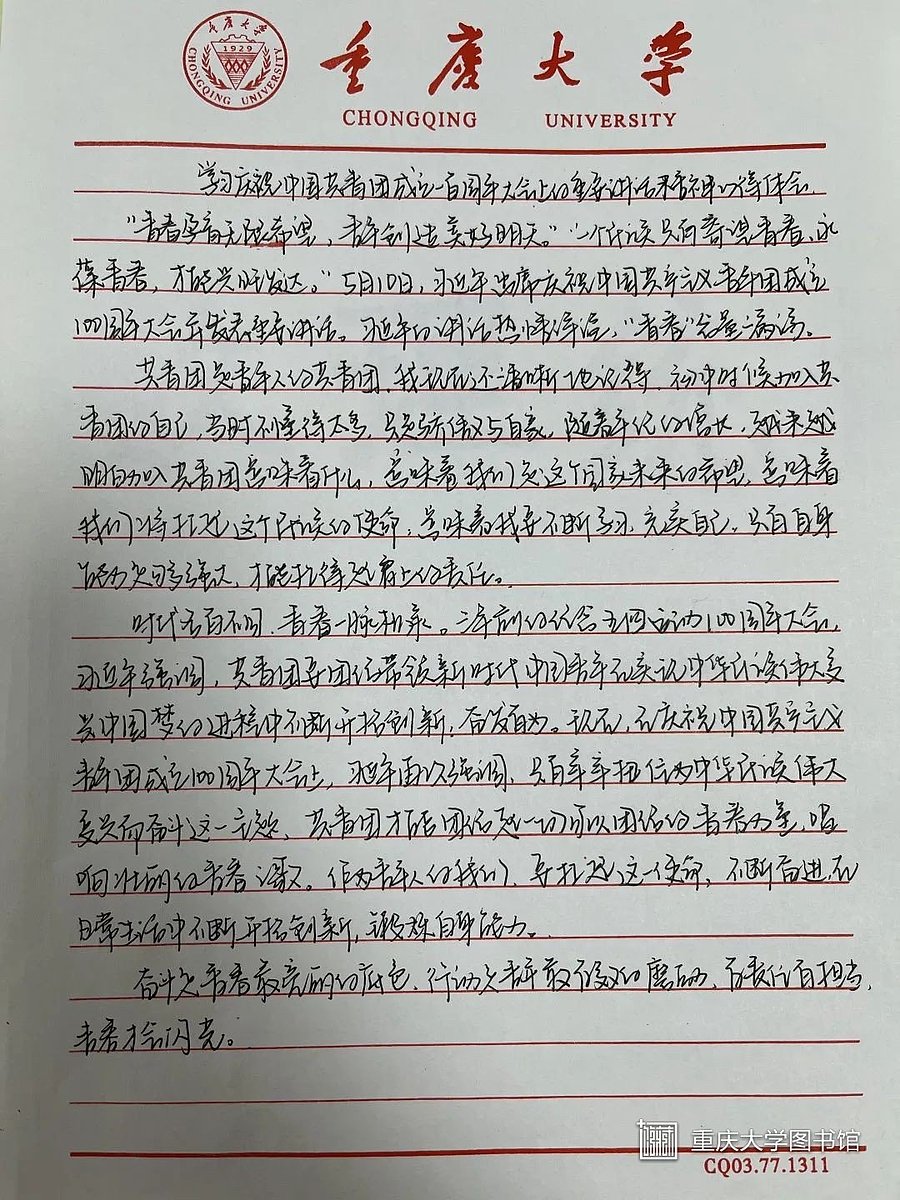 重庆大学
1929
CHONGQING UNIVERSITY
重庆大学
CHONGQING UNIVERSITY
学习庆祝中国共青团成立一百周年大会上的重要讲话精神心得体会
“青春孕育无限希望，青年创造美好明天。”“一个民族只有寄望青春、永
葆青春，才能兴旺发达。”5月10日，习近平出席庆祝中国共产主义青年团成立
100周年大会并发表重要讲话。习近平的讲话热情洋溢，“青春”能量满满。
共青团是青年人的共青团，我现在还清晰地记得，初中时候加入共
青团的自己，当时不懂得太多，只是骄傲又与自豪，随着年纪的增长，越来越
明白加入共青团意味着什么，意味着我们是这个国家未来的希望，意味着
我们将扛起这个民族的使命，意味着我要不断学习，充实自己。只有自身
能力足够强大，才能扛得起肩上的责任。
时代各有不同，青春一脉相承。三年前的纪念五四运动100周年大会，
习近平强调，共青团要团结带领新时代中国青年在实现中华民族伟大复
兴中国梦的进程中不断开拓创新，奋发有为。现在，在庆祝中国共产主义
青年团成立100周年大会上，习近平再次强调，只有牢牢扭住为中华民族伟大
复兴而奋斗这一主题，共青团才能团结起一切可以团结的青春力量，唱
响壮丽的青春之歌。作为青年人的我们，要扛起这一使命，不断奋进，在
日常生活中不断开拓创新，锻炼自身能力。
奋斗是青春最亮丽的底色，行动是青年最有效的磨砺，有责任有担当，
青春才会闪亮。
重庆大学图书馆
CQ03.77.1311